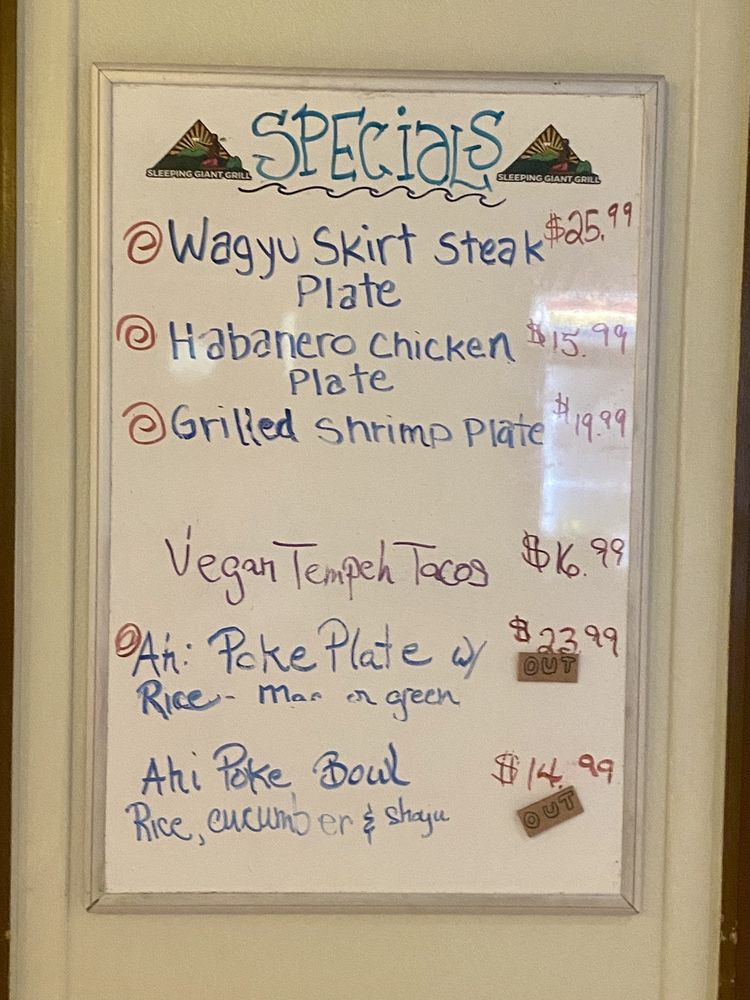 SPECiaLS
SLEEPING GIANT GRILL
SLEEPING GIANT GRILL
Wagyu Skirt Steak $25.99
Plate
Habanero Chicken $15.99
Plate
Grilled Shrimp Plate $19.99
Vegan Tempeh Tacos $16.99
Ahi Poke Plate w/ $23.99
OUT
Rice - Mac or green
Ahi Poke Bowl $14.99
Rice, cucumber & Shoyu
OUT